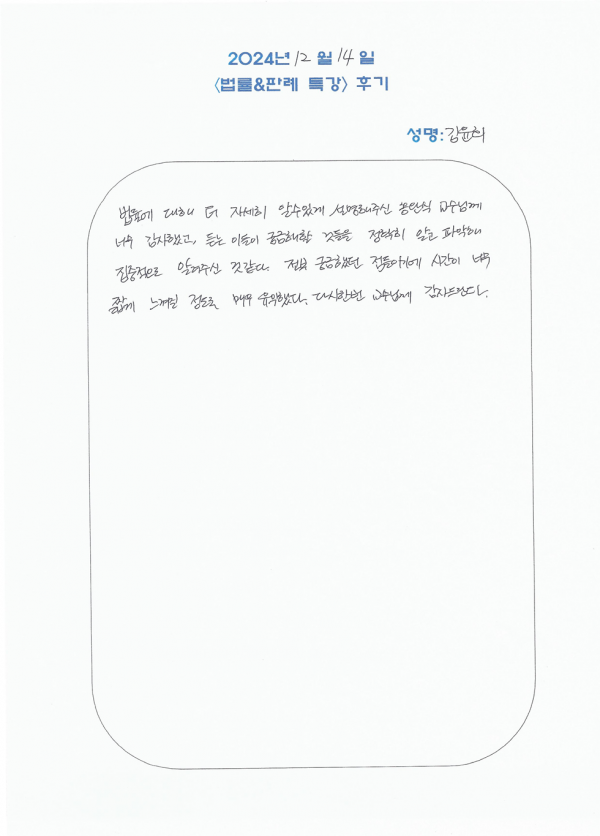 2024년 12월 14일
<법률&판례 특강> 후기
성명: 김윤희
법률에 대해 더 자세히 알수있게 설명해주신 교수님께
너무 감사했고, 듣는 이들이 궁금해할 것들을 정확히 알고 파악해
집중적으로 알려주신 것같다. 전부 궁금했던 점들이기에 시간이 너무
짧게 느껴질 정도로 매우 유익했다. 다시한번 교수님께 감사드린다.